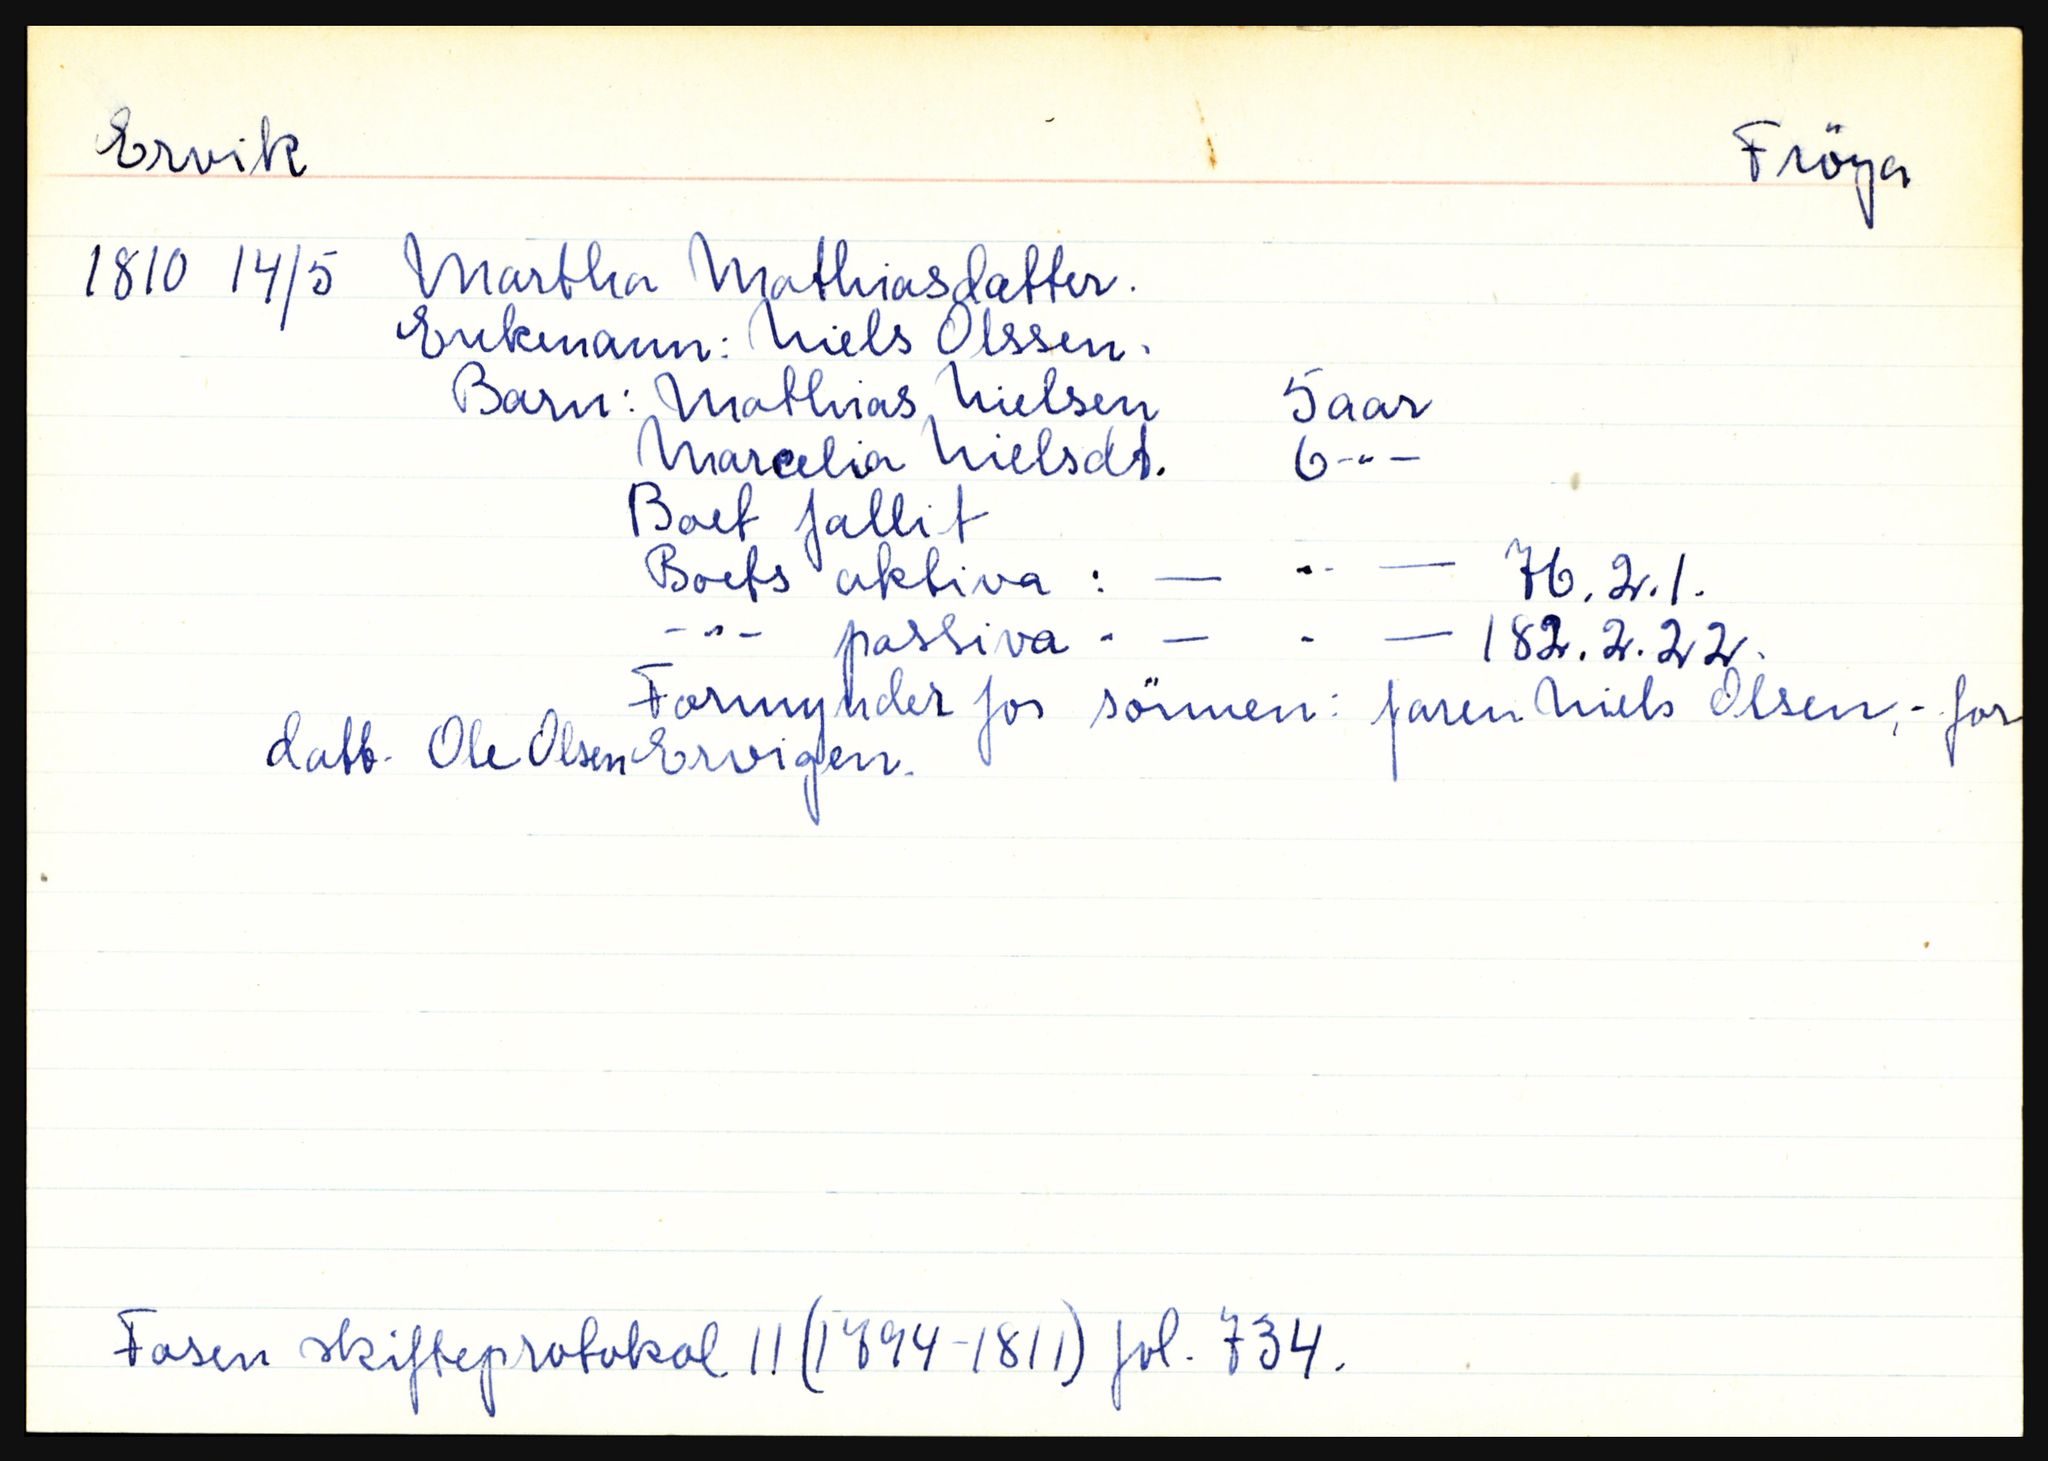 Ervik Fröya
1810 14/5 Martha Mathiasdatter.
Enkemann: Niels Olssen.
Barn: Mathias Nielsen 5 aar
Marcelia Nielsdt. 6 -"-
Boet fallit
Boets aktiva : — " — 76.2.1.
-"- passiva - — - — 182.2.22.
Formynder for sönnen: faren Niels Olsen, - for
datt. Ole Olsen Ervigen.
Fosen skifteprotokol 11 (1794-1811) fol. 734.